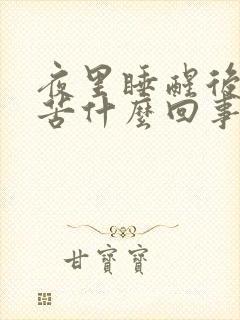 夜里睡醒後
苦什麼回事
甘寶寶